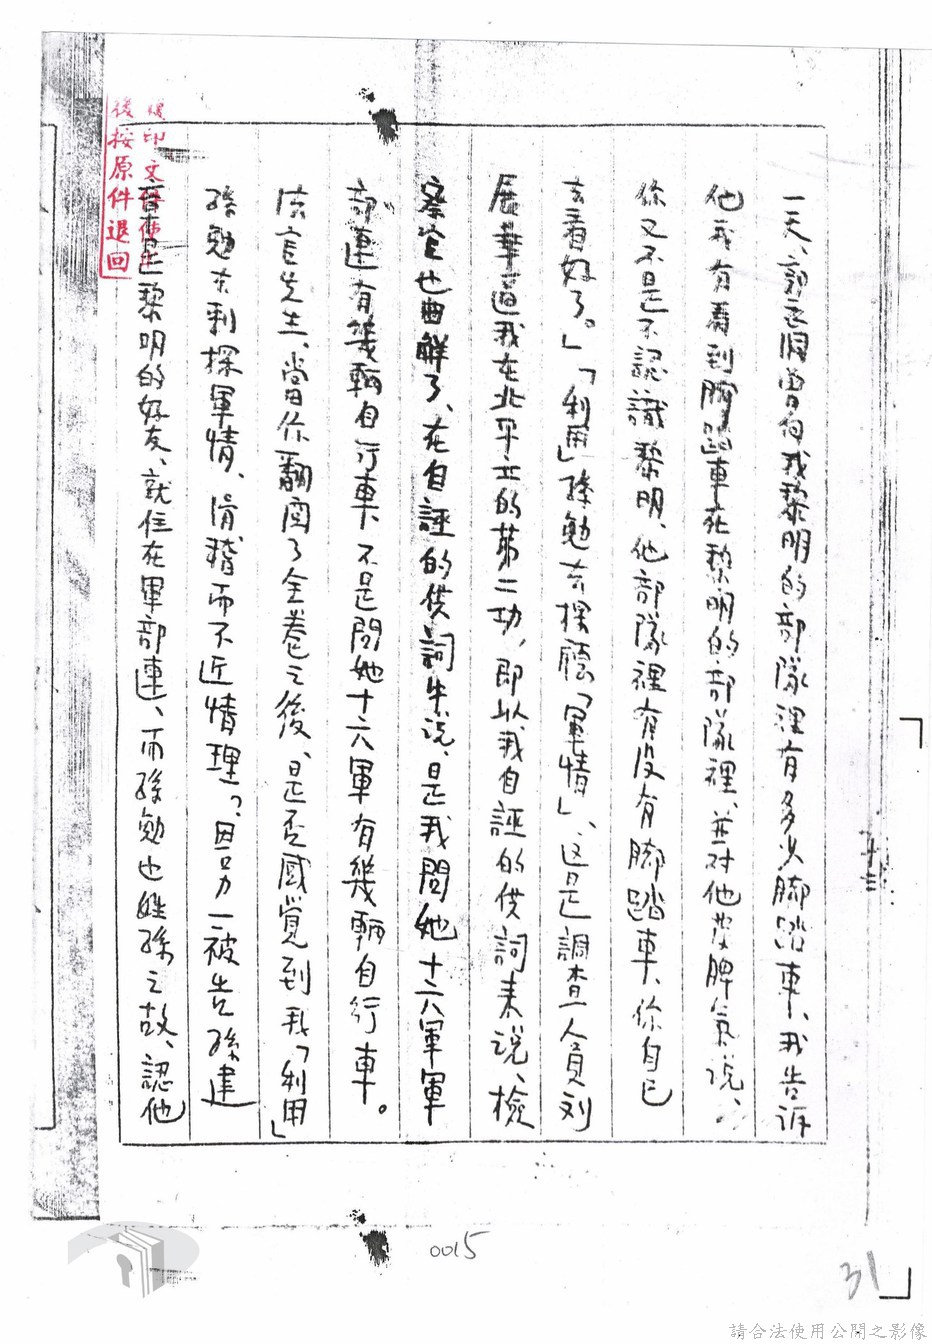 一天、郭之開曾向我黎明的部隊裡有多少脚踏車、我告訴
他我有看到脚踏車在黎明的部隊裡、並对他發脾氣說、
你又不是不認識黎明、他部隊裡有沒有脚踏車、你自己
去看好了。」「利用」孫勉去探聽「軍情」、这是調查人員刘
展華逼我在北平立的第二功、即以我自誣的供詞来說、檢
察官也曲解了、在自誣的供詞中說、是我問她十六軍軍
部連有幾輛自行車、不是問她十六軍有幾輛自行車。
法官先生、當你翻閱了全卷之後、是否感覺到我「利用」
孫勉去刺探軍情、滑稽而不近情理、因另一被告孫建
黎明的好友、就住在軍部連、而孫勉也姓孫之故、認他
後按原件退回
0015
31
請合法使用公開之影像